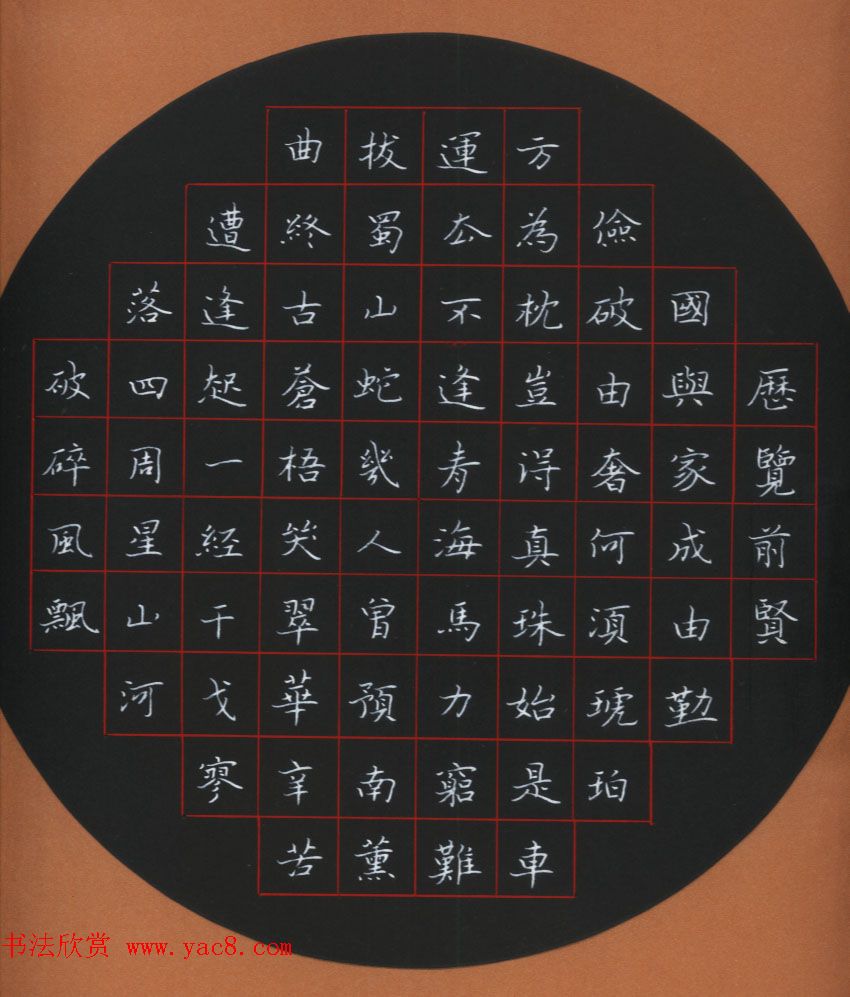 歷覽前賢
國與家成由勤
儉破由奢何須琥珀
方為枕豈得真珠始是車
運去不逢青海馬力窮難
拔蜀山蛇幾人曾預南薰
曲終古蒼梧哭翠華辛苦
遭逢起一経干戈寥
落四周星山河
破碎風飄
书法欣赏 www.yac8.com